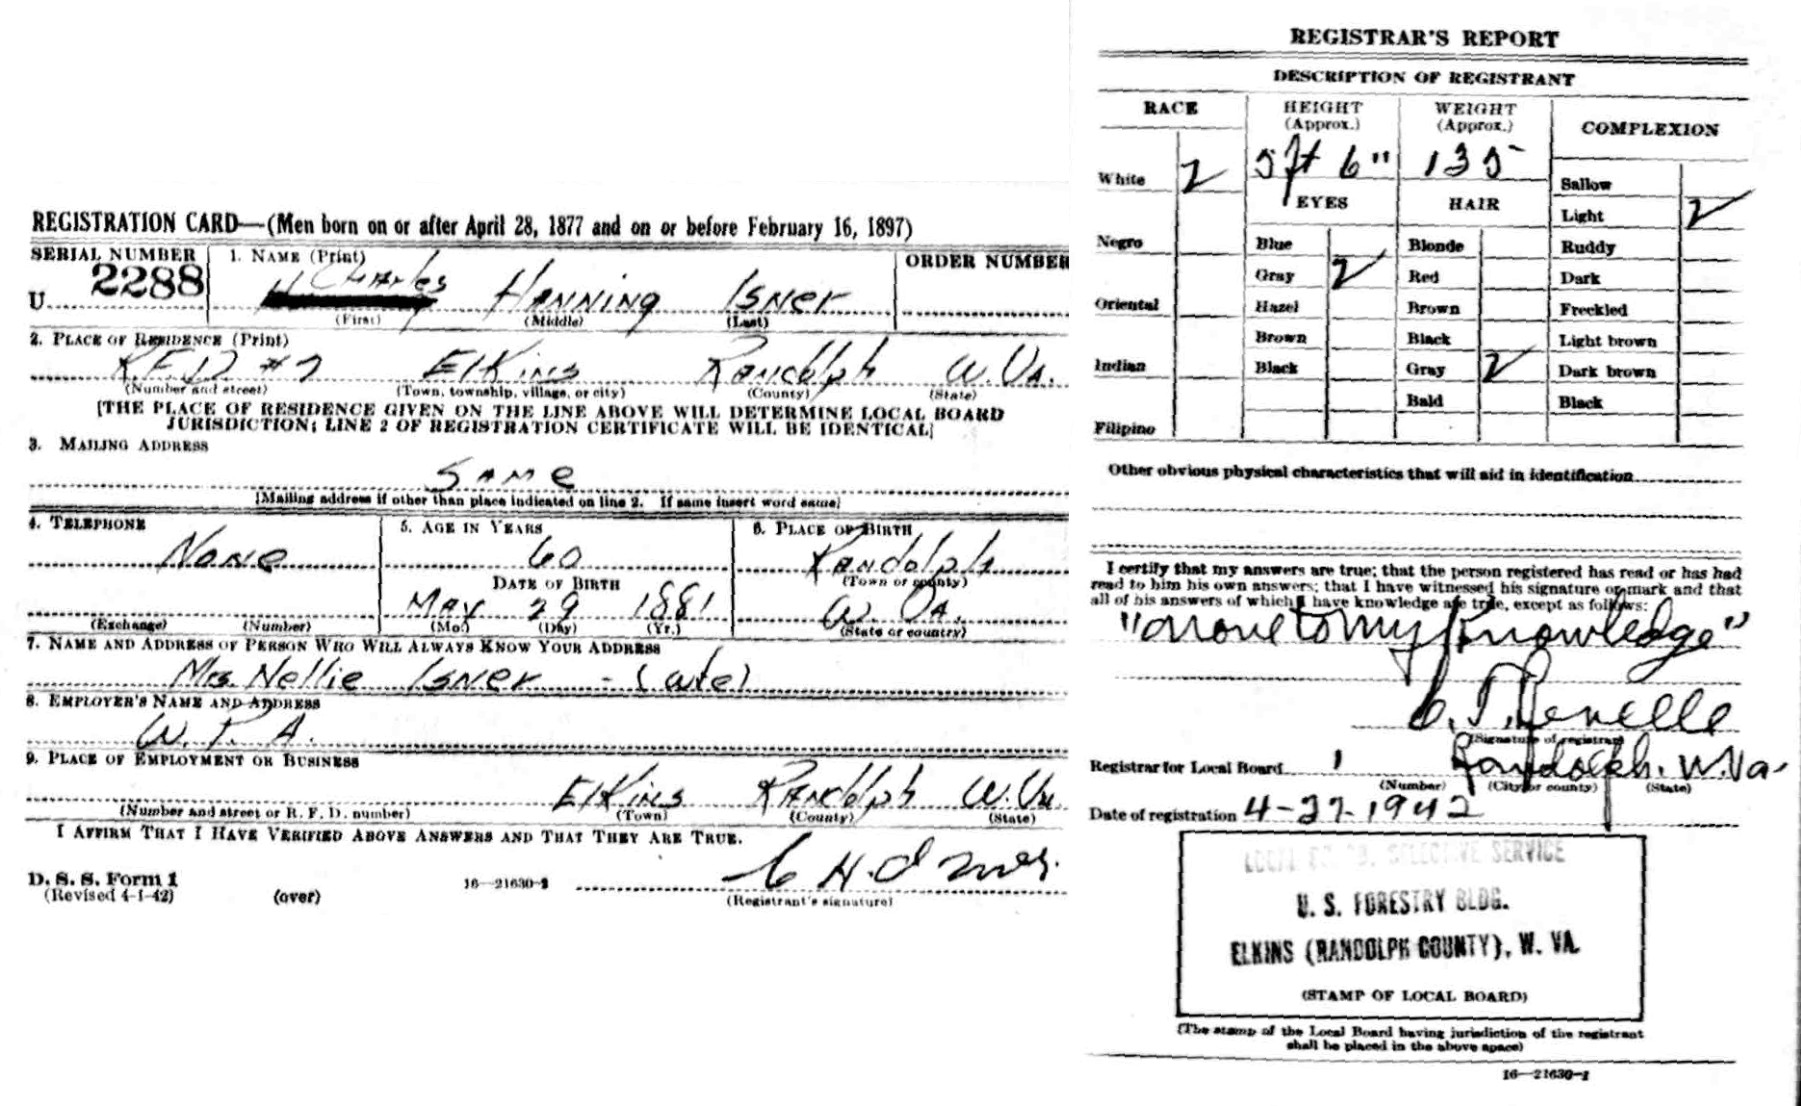 REGISTRATION CARD—(Men born on or after April 28, 1877 and on or before February 16, 1897)
SERIAL NUMBER
1. NAME (Print)
ORDER NUMBER
U 2288
Charles Henning Isner
(First) (Middle) (Last)
2. PLACE OF RESIDENCE (Print)
R.F.D. #2 Elkins Randolph W. Va.
(Number and street) (Town, township, village, or city) (County) (State)
[THE PLACE OF RESIDENCE GIVEN ON THE LINE ABOVE WILL DETERMINE LOCAL BOARD
JURISDICTION; LINE 2 OF REGISTRATION CERTIFICATE WILL BE IDENTICAL]
3. MAILING ADDRESS
Same
[Mailing address if other than place indicated on line 2. If same insert word same]
4. TELEPHONE
None
(Exchange) (Number)
5. AGE IN YEARS
60
DATE OF BIRTH
May 29 1881
(Mo.) (Day) (Yr.)
6. PLACE OF BIRTH
Randolph
(Town or county)
W. Va.
(State or country)
7. NAME AND ADDRESS OF PERSON WHO WILL ALWAYS KNOW YOUR ADDRESS
Mrs. Nellie Isner - (wife)
8. EMPLOYER'S NAME AND ADDRESS
W. P. A.
9. PLACE OF EMPLOYMENT OR BUSINESS
Elkins Randolph W. Va.
(Number and street or R. F. D. number) (Town) (County) (State)
I AFFIRM THAT I HAVE VERIFIED ABOVE ANSWERS AND THAT THEY ARE TRUE.
C H Isner.
D. S. S. Form 1
(Revised 4-1-42) (over) 16—21630-2 (Registrant's signature)
REGISTRAR'S REPORT
DESCRIPTION OF REGISTRANT
RACE
HEIGHT
(Approx.)
WEIGHT
(Approx.)
COMPLEXION
White
5 ft 6" 135
Sallow
EYES HAIR
Light
Negro Blue Blonde Ruddy
Gray Red Dark
Oriental Hazel Brown Freckled
Brown Black Light brown
Indian Black Gray Dark brown
Bald Black
Filipino
Other obvious physical characteristics that will aid in identification
I certify that my answers are true; that the person registered has read or has had
read to him his own answers; that I have witnessed his signature or mark and that
all of his answers of which I have knowledge are true, except as follows:
"None to my Knowledge"
(Signature of registrar)
Registrar for Local Board 1 Randolph. W.Va.
(Number) (City or county) (State)
Date of registration 4-27-1942
LOCAL BOARD SELECTIVE SERVICE
U. S. FORESTRY BLDG.
ELKINS (RANDOLPH COUNTY), W. VA.
(STAMP OF LOCAL BOARD)
(The stamp of the Local Board having jurisdiction of the registrant
shall be placed in the above space)
16—21630-1